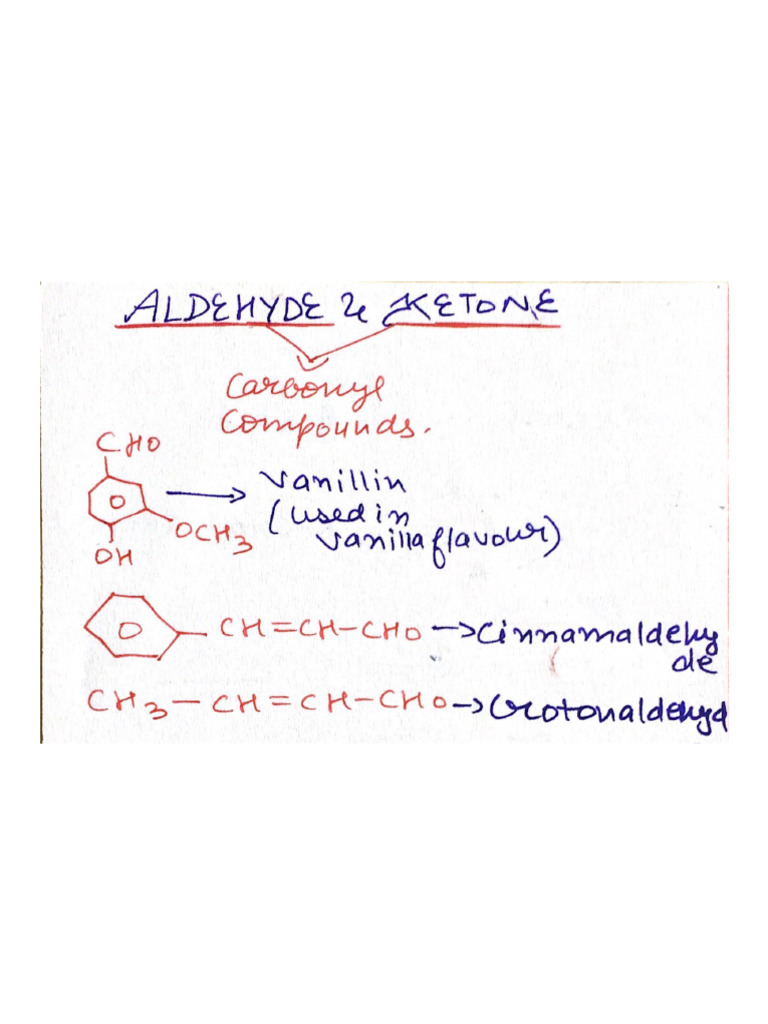 ALDEHYDE & KETONE
Carbonyl
Compounds.
CHO
Vanillin
(used in
vanilla flavour)
OCH3
OH
CH=CH-CHO → Cinnamaldehy
de
CH3-CH=CH-CHO → Crotonaldehyd